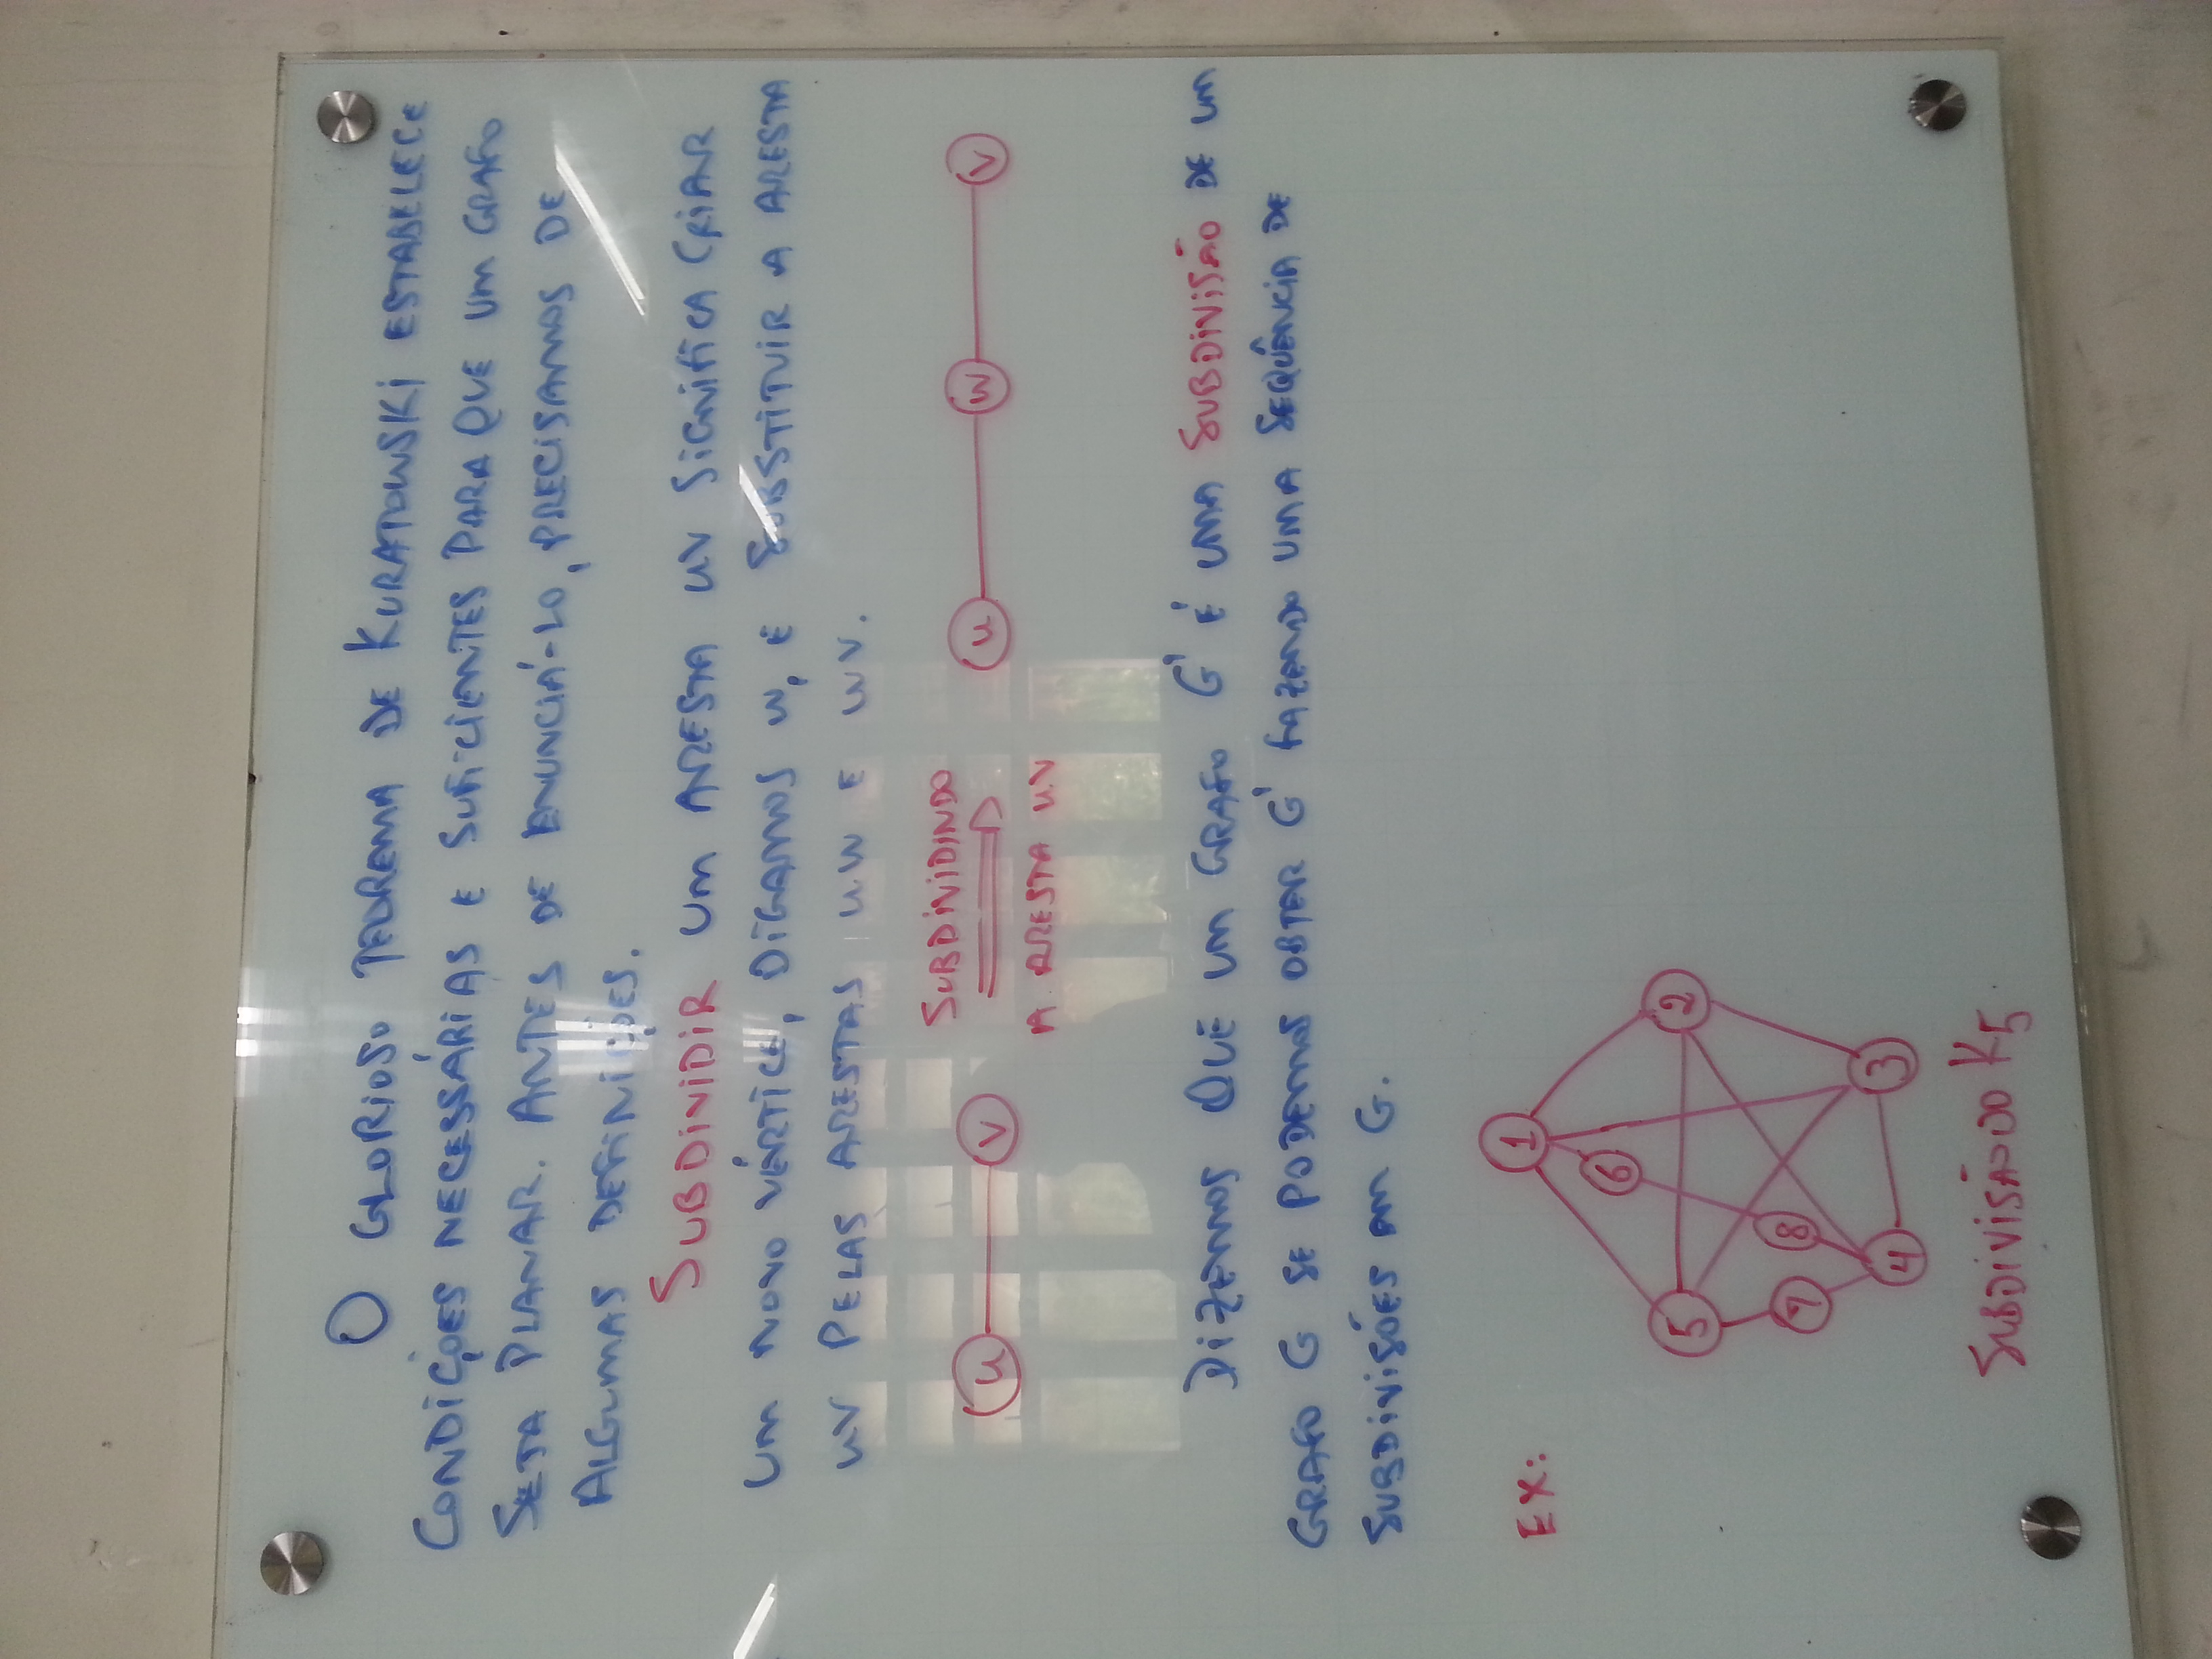 O GLORIOSO TEOREMA DE KURATOWSKI ESTABELECE
CONDIÇÕES NECESSÁRIAS E SUFICIENTES PARA QUE UM GRAFO
SEJA PLANAR. ANTES DE ENUNCIÁ-LO, PRECISAMOS DE
ALGUMAS DEFINIÇÕES.
SUBDIVIDIR UM ARESTA UV SIGNIFICA CRIAR
UM NOVO VÉRTICE, DIGAMOS W, E SUBSTITUIR A ARESTA
UV PELAS ARESTAS UW E WV.
SUBDIVIDINDO
u v u w v
A ARESTA UV
DIZEMOS QUE UM GRAFO G' É UMA SUBDIVISÃO DE UM
GRAFO G SE PODEMOS OBTER G' FAZENDO UMA SEQUÊNCIA DE
SUBDIVISÕES EM G.
EX:
1
6
5 2
7 8
4 3
SUBDIVISÃO DO K5